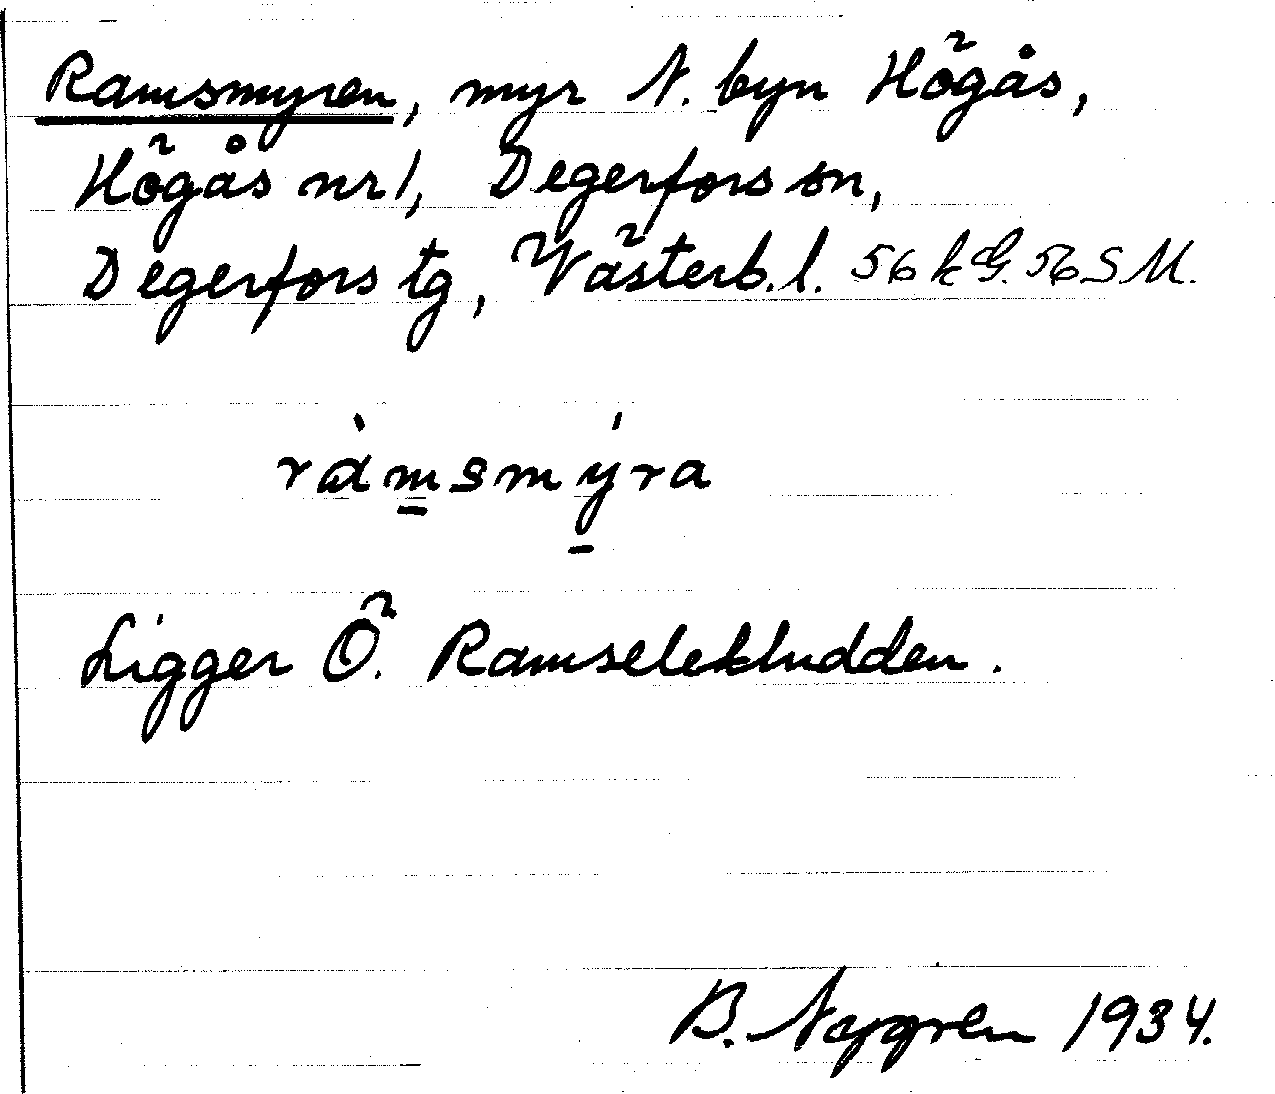 Ramsmyren, myr N. byn Högås,
Högås nr 1, Degerfors sn,
Degerfors tg, Västerb. l. 56 k G. 56 S M.
ràmsmýra
Ligger Ö. Ramselekludden.
B. Nygren 1934.